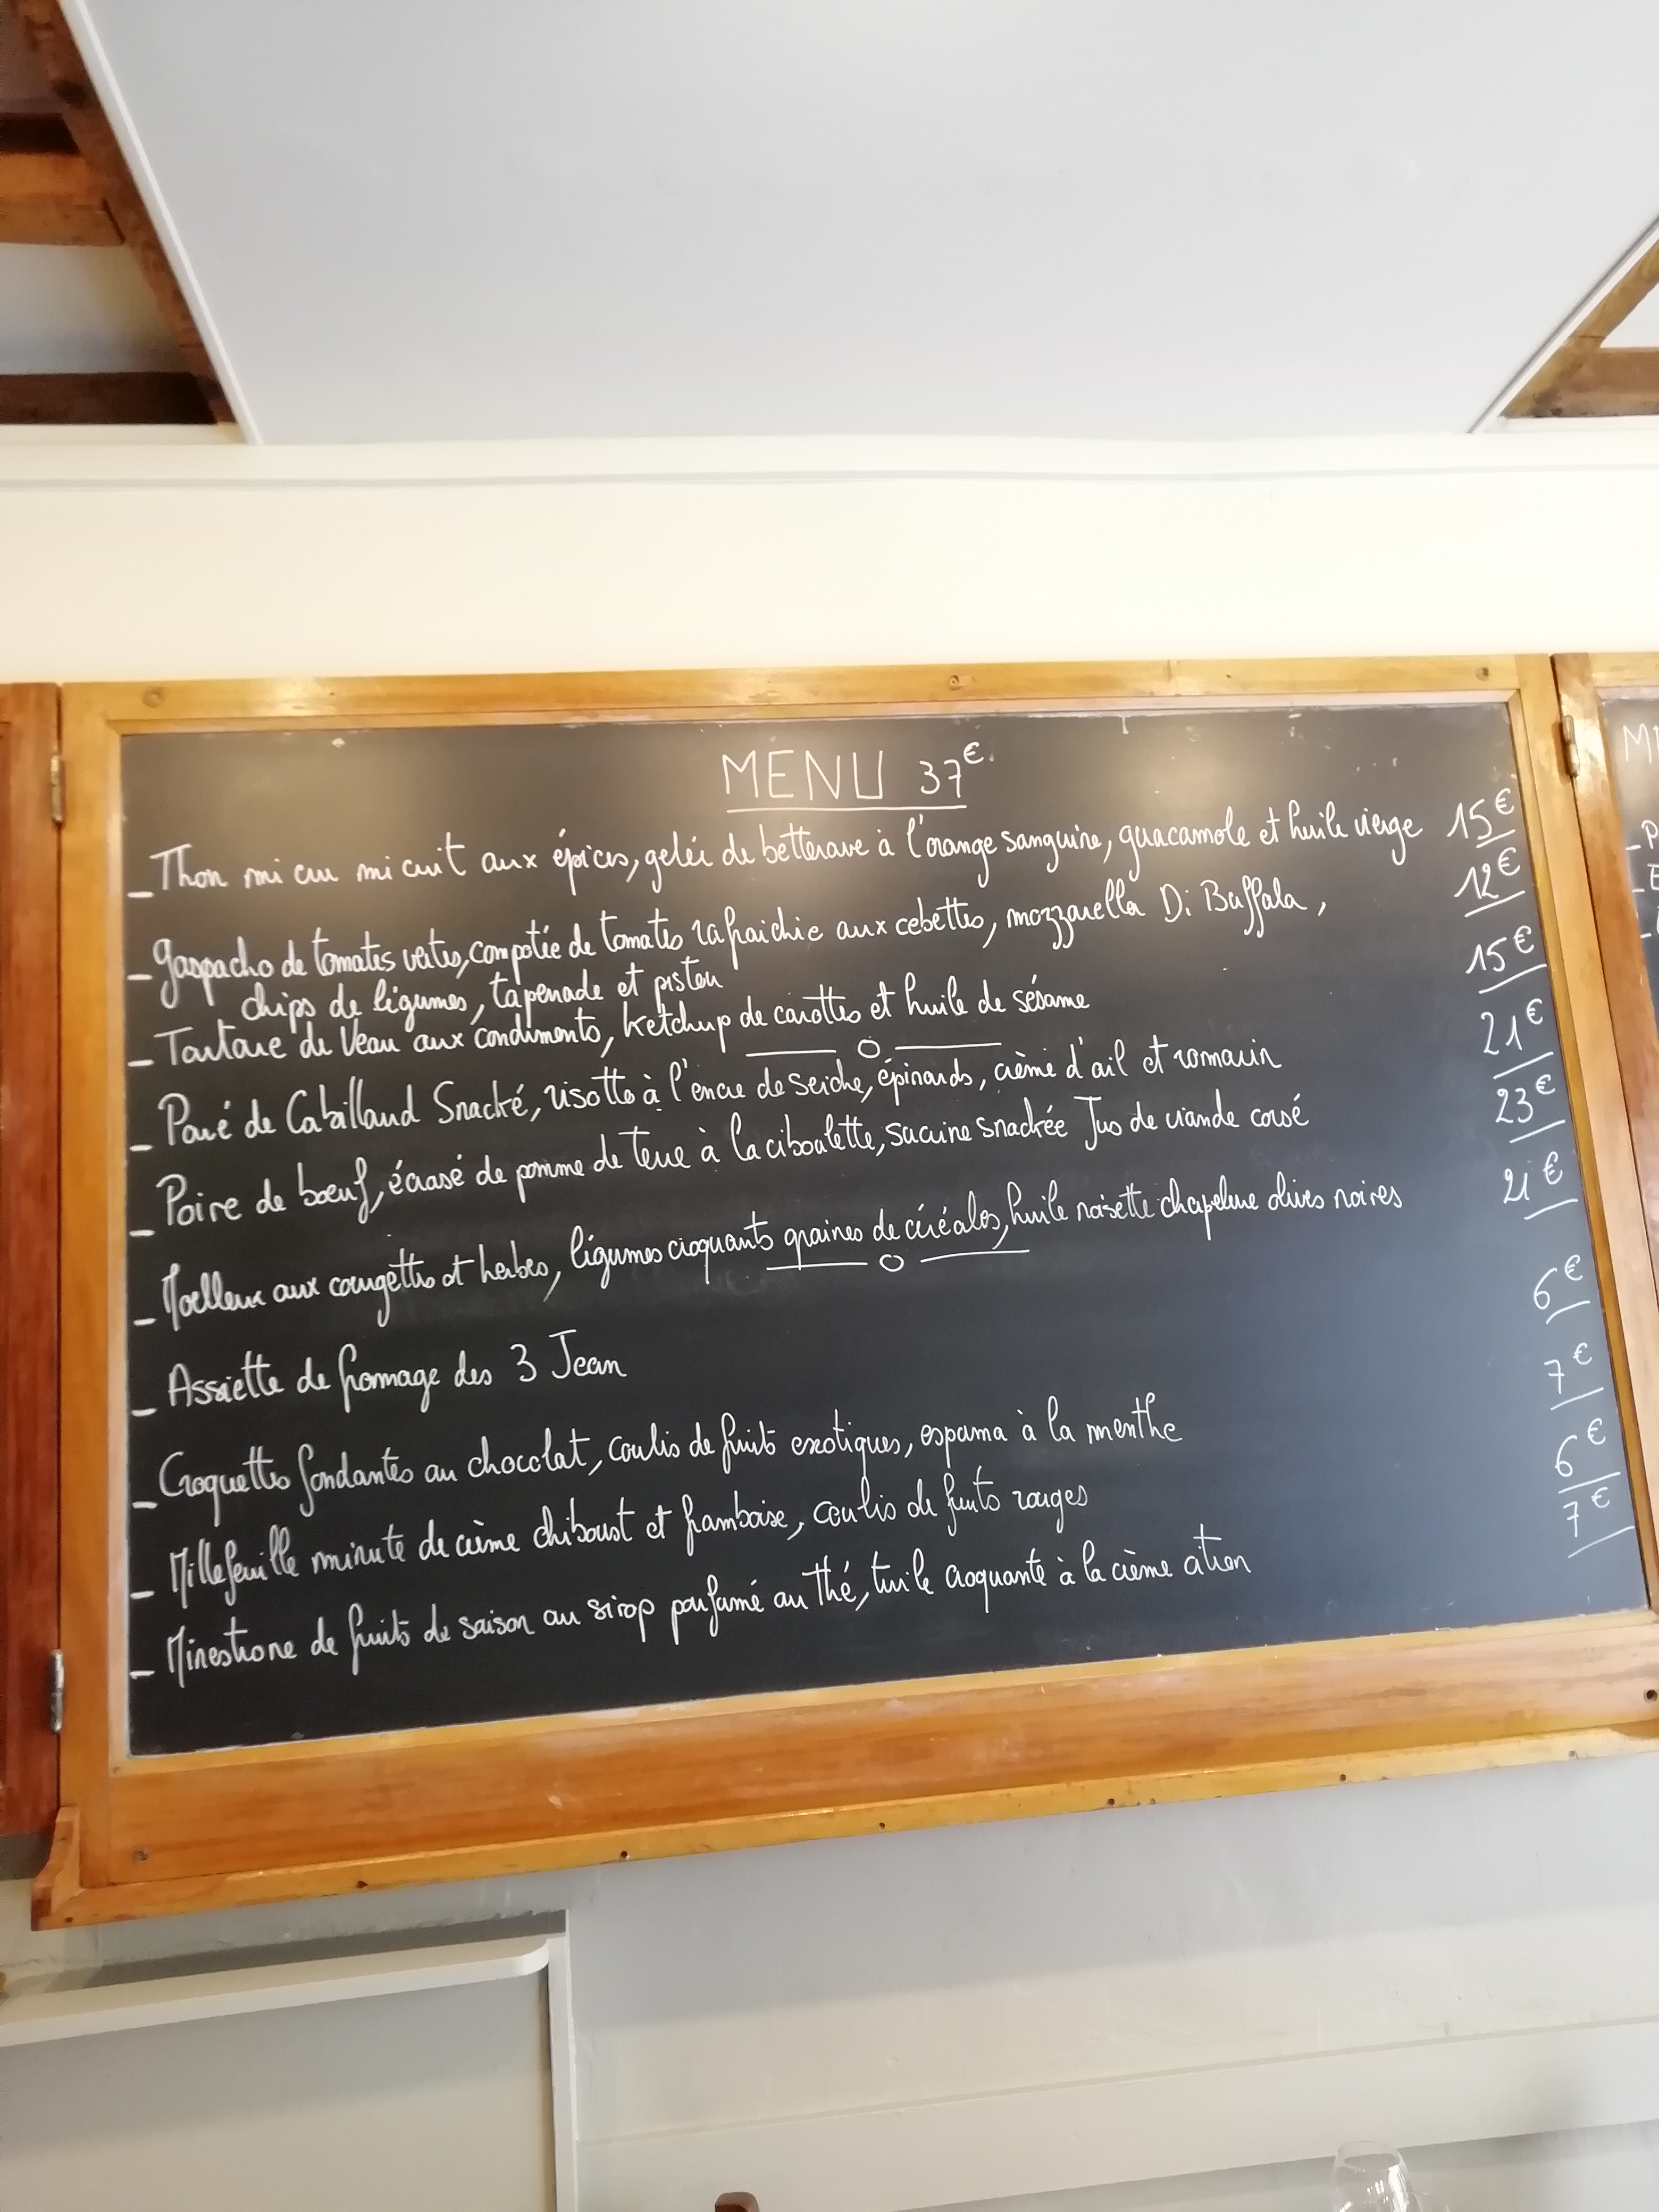 MENU 37€
_ Thon mi cru mi cuit aux épices, gelée de betterave à l'orange sanguine, guacamole et huile vierge 15€
_ Gaspacho de tomates vertes, compotée de tomates rafraichie aux cebettes, mozzarella Di Buffala, 12€
chips de légumes, tapenade et pistou
_ Tartare de Veau aux condiments, ketchup de carottes et huile de sésame 15€
_ Pavé de Cabillaud Snacké, risotto à l'encre de seiche, épinards, crème d'ail et romarin 21€
_ Poire de bœuf, écrasé de pomme de terre à la ciboulette, sucrine snackée Jus de viande corsé 23€
_ Moelleux aux courgettes et herbes, légumes croquants graines de céréales, huile noisette chapelure olives noires 21€
_ Assiette de fromage des 3 Jean 6€
_ Croquettes fondantes au chocolat, coulis de fruits exotiques, espuma à la menthe 7€
_ Millefeuille minute de crème chiboust et framboise, coulis de fruits rouges 6€
_ Minestrone de fruits de saison au sirop parfumé au thé, tuile croquante à la crème citron 7€